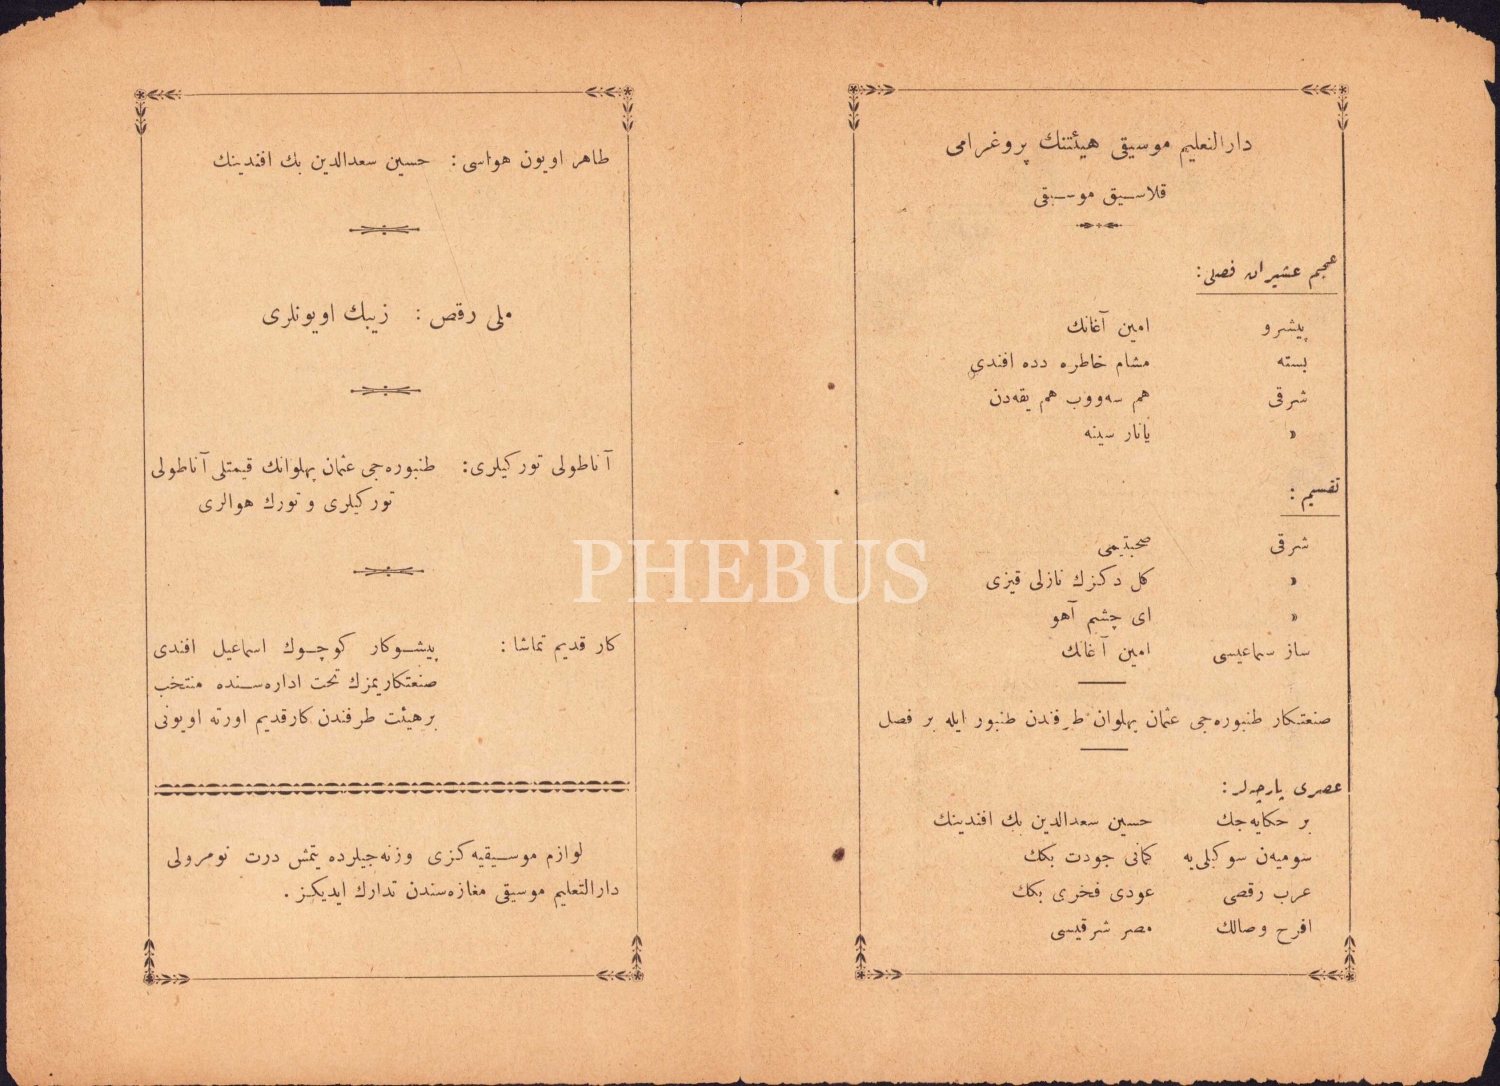 دارالتعليم موسيقى هيئتنك پروغرامى
قلاسيق موسيقى
عجم عشيران فصلى :
پيشرو امين آغانك
بسته مشام خاطره دده افندى
شرقى هم سەووب هم يقەدن
» يانار سينه
تقسيم :
شرقى صحبتيمى
» كل دكزك نازلى قيزى
» اى چشم آهو
ساز سماعيسى امين آغانك
صنعتكار طنبورەجى عثمان پهلوان طرفندن طنبور ايله بر فصل
عصرى پارچەلر :
بر حكايەجك حسين سعدالدين بك افندينك
سوميەن سوكيلى يه كمانى جودت بكك
عرب رقصى عودى فخرى بكك
افرح وصالك مصر شرقيسى
طاهر اويون هواسى : حسين سعدالدين بك افندينك
ملى رقص : زيبك اويونلرى
آناطولى توركيلرى : طنبورەجى عثمان پهلوانك قيمتلى آناطولى
توركيلرى و تورك هوالرى
كار قديم تماشا : پيشوكار كوچوك اسماعيل افندى
صنعتكاريمزك تحت ادارەسنده منتخب
برهيئت طرفندن كارقديم اورته اويونى
لوازم موسيقيەكزى وزنەجيلرده يتمش درت نومرولى
دارالتعليم موسيقى مغازەسندن تدارك ايديكز .
PHEBUS